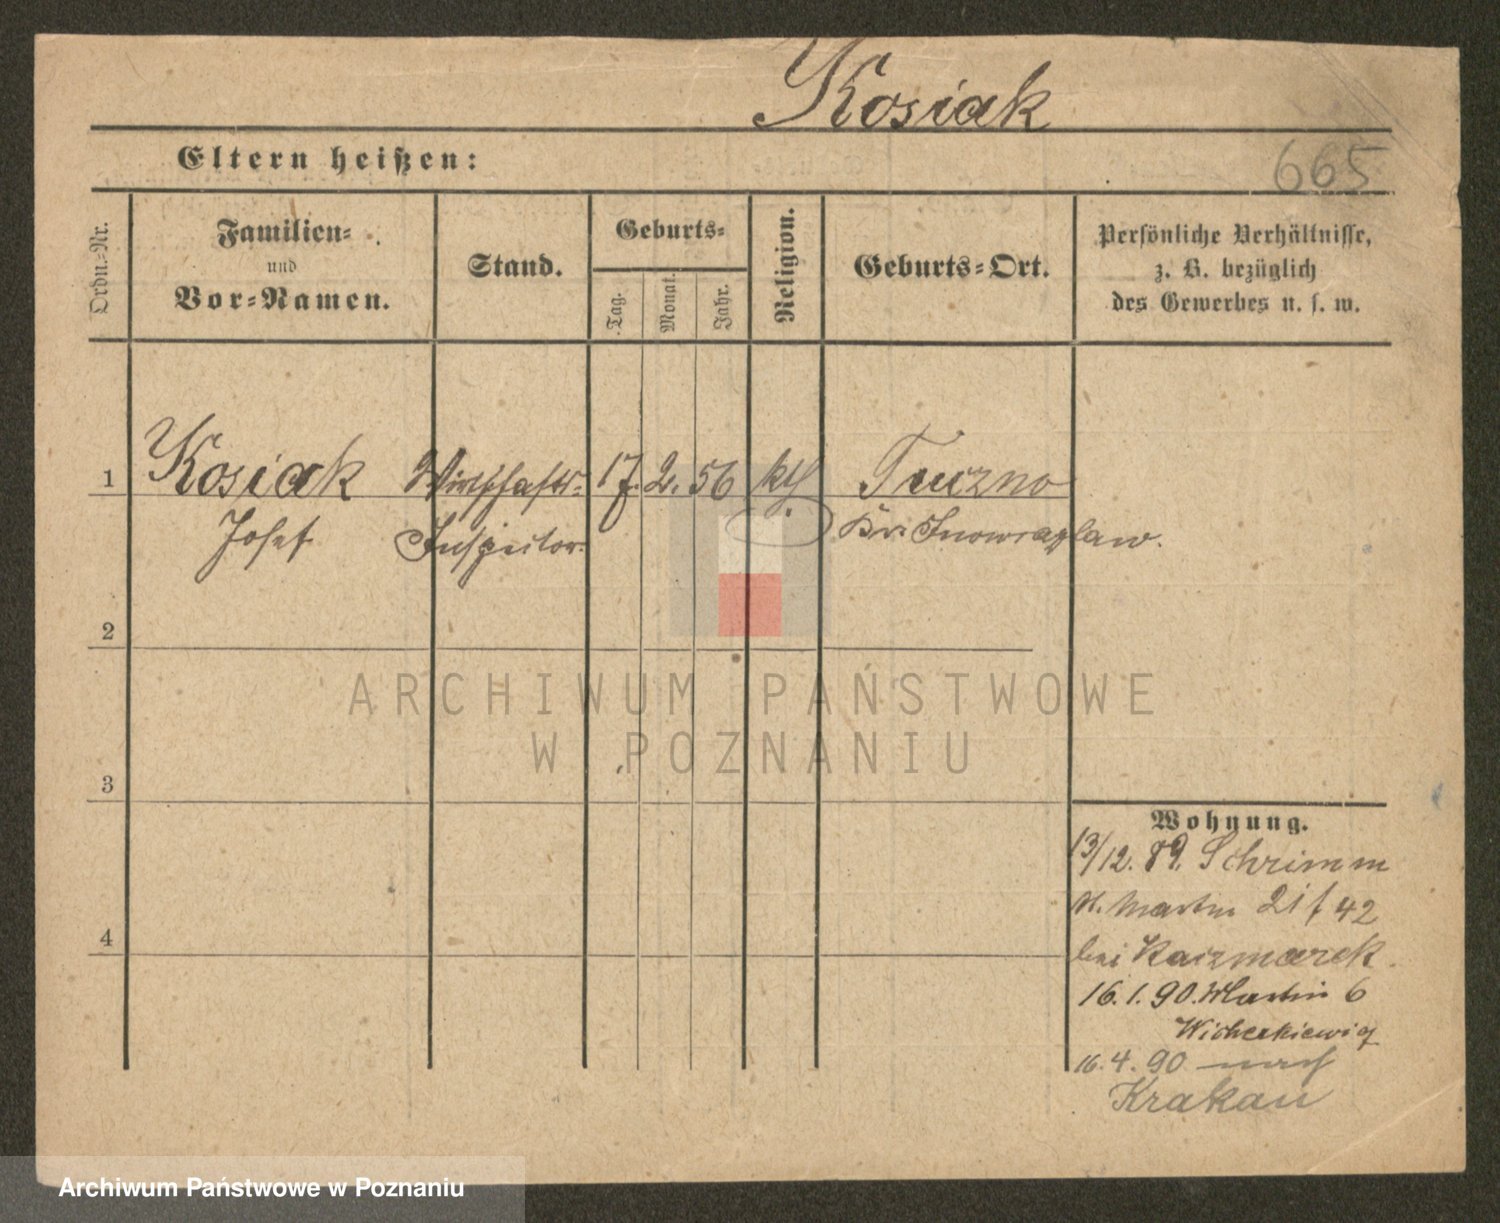 Kosiak
Eltern heißen:
665
Ordn.-Nr.
Familien-
und
Vor-Namen.
Stand.
Geburts-
Tag.
Monat.
Jahr.
Religion.
Geburts-Ort.
Persönliche Verhältnisse,
z. B. bezüglich
des Gewerbes u. s. w.
1 Kosiak Wirthschafts- 17. 2. 56 kth. Tuczno
Josef Inspector. Kr. Inowrazlaw.
2
3
4
ARCHIWUM PAŃSTWOWE
W POZNANIU
Wohnung.
13/12. 89. Schrimm
St. Martin 21 f 42
bei Kaczmarek.
16.1.90. Martin 6
Wicherkiewicz
16.4.90 nach
Krakau
Archiwum Państwowe w Poznaniu